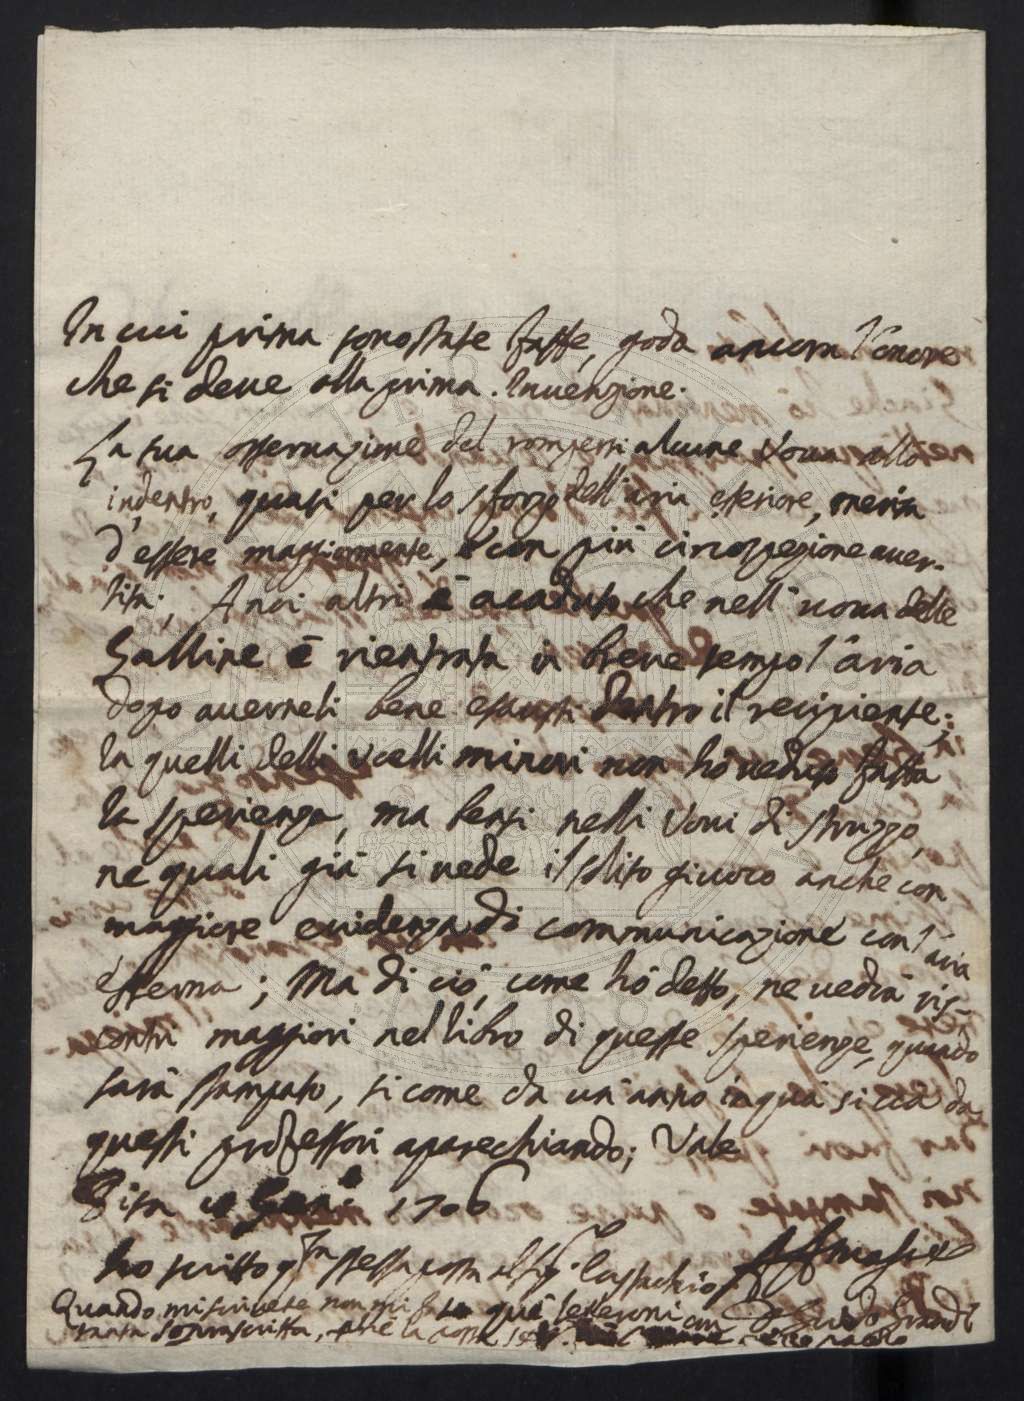 In cui prima sono state fatte, goda ancora l'onore
che si deve alla prima Invenzione.
La sua osservazione del rompersi alcune vova allo
indentro, quasi per lo sforzo dell'aria esteriore, merita
d'essere maggiormente, e con più circospezione auver-
tita; A noi altri è acaduto che nell'uova delle
Galline è rientrata in breve tempo l'aria
dopo auerneli bene esausti dentro il recipiente;
In quelli delli vcelli minori non hò veduto fatta
la sperienza, ma bensi nelli Vovi di struzzo,
ne quali già si vede il solito giuoco anche con
maggiore evidenza di communicazione con l'aria
esterna; Ma di ciò, come hò detto, ne vedrà ris-
contri maggiori nel libro di queste sperienze, quando
sarà stampato, si come da un'anno in quà si và da
questi professori aparechiando; Vale
Pisa Gen. 1706
ho scritto q.ta stessa posta al sig.
Quando mi scrivete non mi fate letteroni con D Guido Grandi
tanta soprascritta,